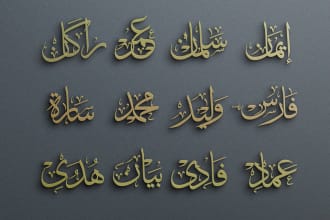 إيمان سلمان عمر راكان
فارس وليد محمد سارة
عماد فادي بيان هدى